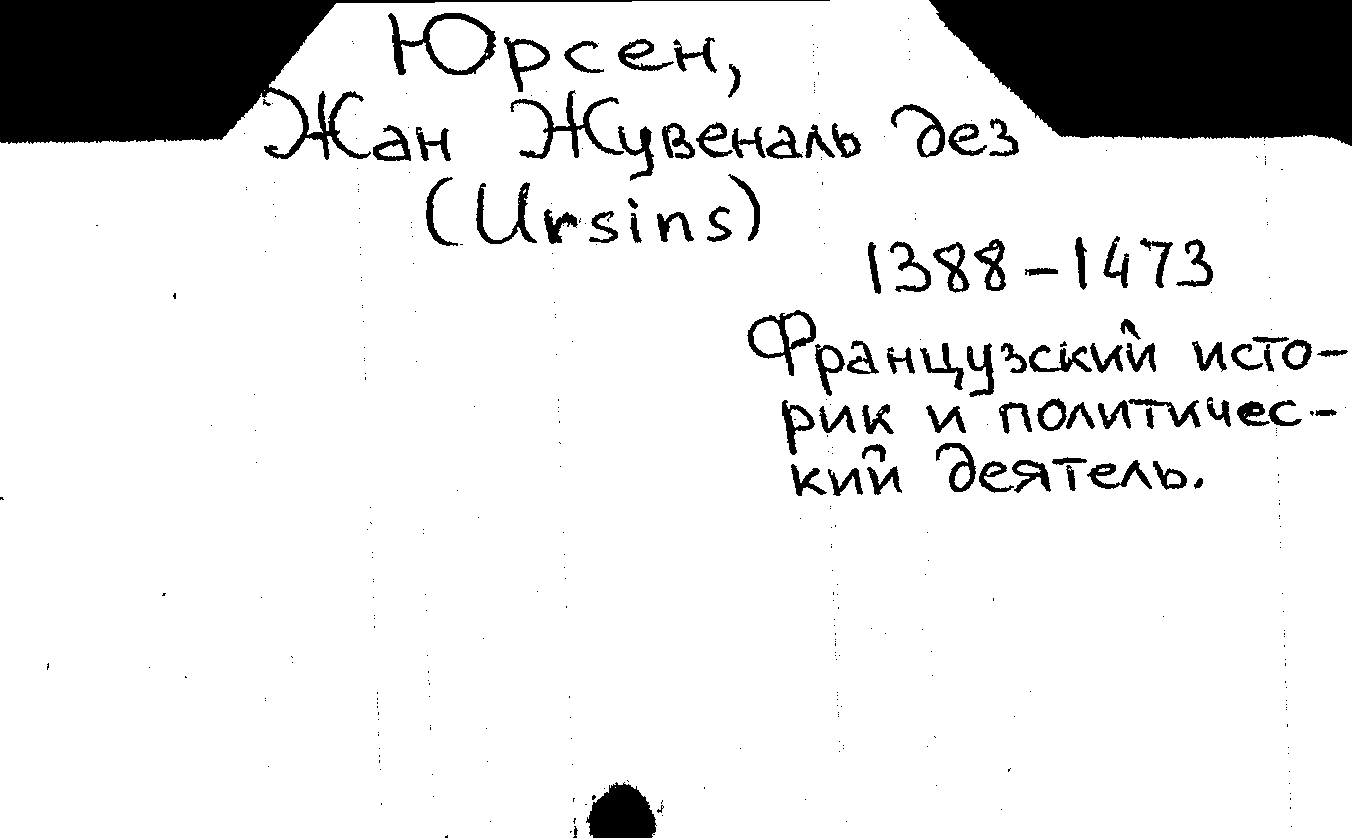 Юрсен,
Жан Жувеналь дез
(Ursins)
1388-1473
Французский исто-
рик и политичес-
кий деятель.